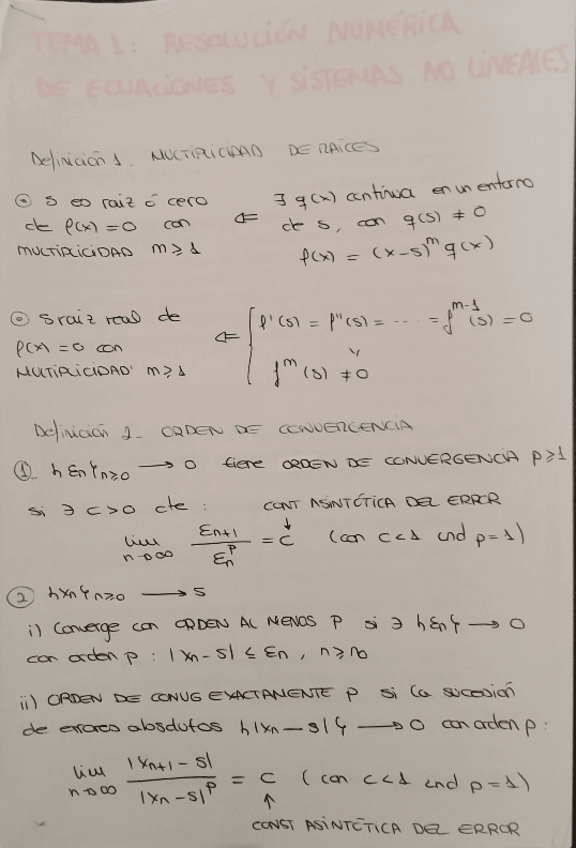 TEMA 1: RESOLUCIÓN NUMÉRICA
DE ECUACIONES Y SISTEMAS NO LINEALES
Definición 1. MULTIPLICIDAD DE RAÍCES
⊙ s es raiz ó cero
de f(x)=0 con
MULTIPLICIDAD m≥1
⇐ ∃ q(x) contínua en un entorno
de s, con q(s) ≠ 0
f(x) = (x-s)^m q(x)
⊙ s raiz real de
f(x)=0 con
MULTIPLICIDAD m≥1
⇐ { f'(s) = f''(s) = ... = f^{m-1}(s) = 0
y
f^m (s) ≠ 0
Definición 2- ORDEN DE CONVERGENCIA
①- {εn}n≥0 → 0 tiene ORDEN DE CONVERGENCIA p≥1
si ∃ c>0 cte :
CONT ASINTÓTICA DEL ERROR
↓
lim n→∞ εn+1 / εn^p = c (con c<1 cnd p=1)
② {xn}n≥0 → s
i) Converge con ORDEN AL MENOS P si ∃ {εn} → 0
con orden p : |xn-s| ≤ εn , n≥n0
ii) ORDEN DE CONVG EXACTAMENTE P si la sucesión
de errores absolutos {|xn-s|} → 0 con orden p:
lim n→∞ |xn+1 - s| / |xn-s|^p = c (con c<1 cnd p=1)
↑
CONST ASINTÓTICA DEL ERROR